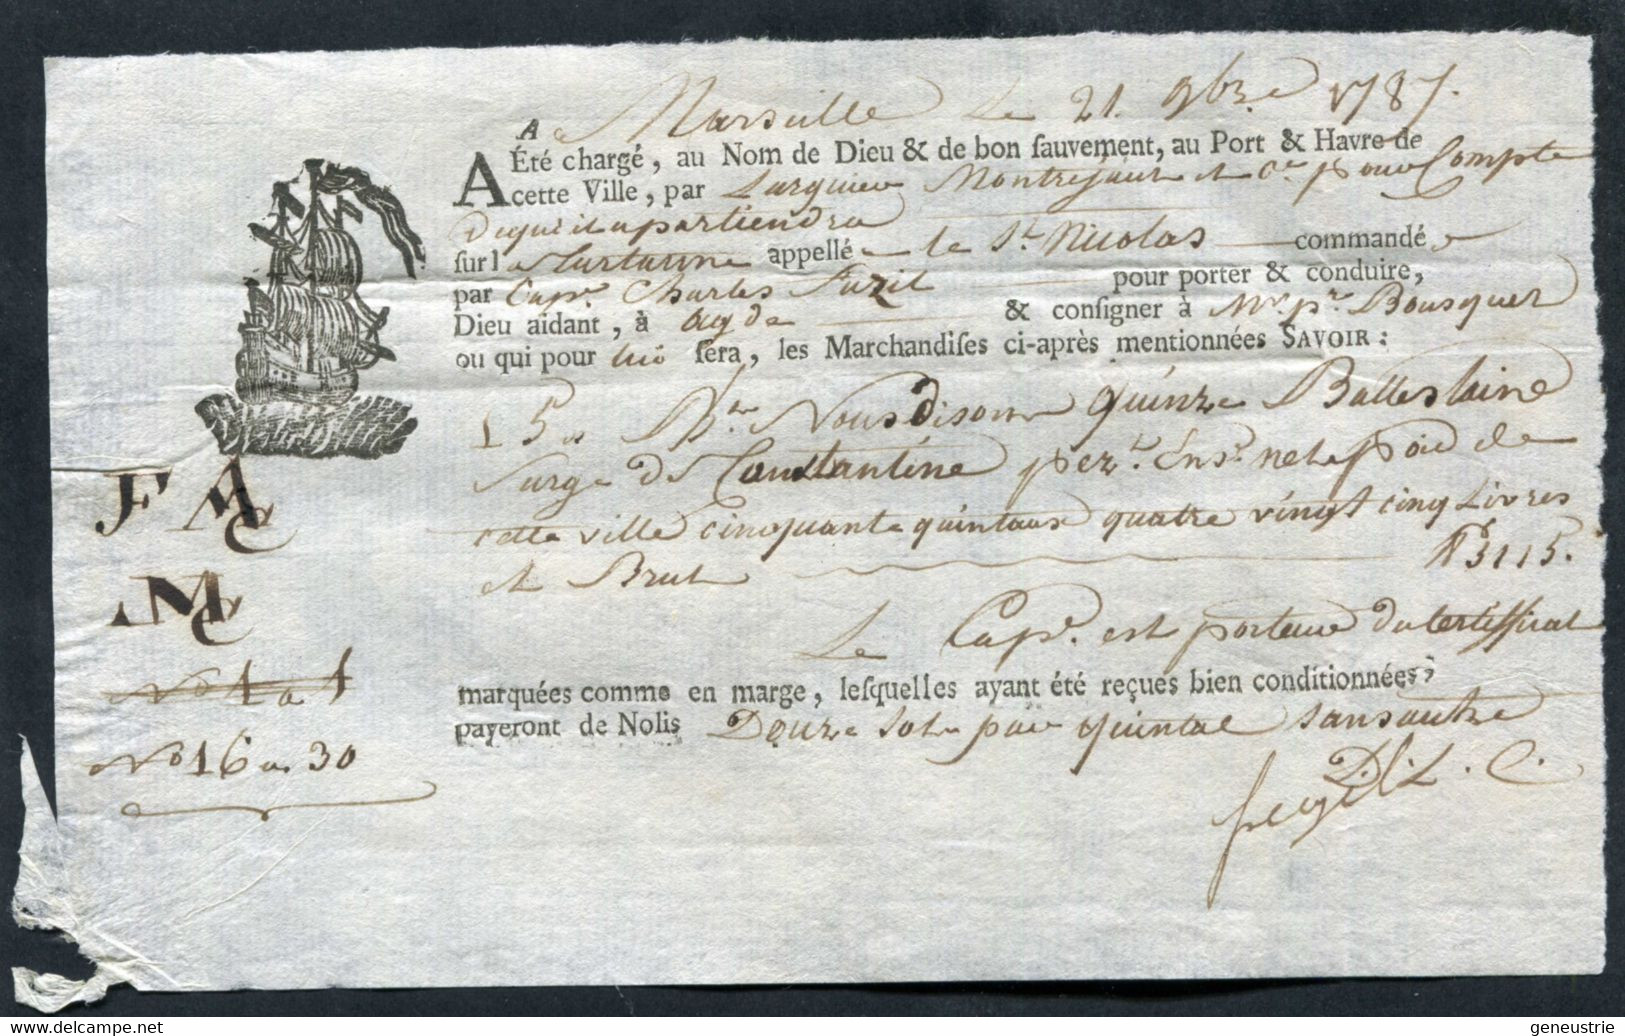 A Marseille Le 21. 9bre 1787.
A Été chargé, au Nom de Dieu & de bon ſauvement, au Port & Havre de
cette Ville, par Larguier Montrejaut et Ce pour Compte
de qui il apartiendra
ſur la Tartanne appellé le St. Nicolas commandé
par Capne. Charles pour porter & conduire,
Dieu aidant, à agde & conſigner à Mr. pre. Bousquet
ou qui pour lui ſera, les Marchandiſes ci-après mentionnées SAVOIR:
15 Bles Nous Disons quinze Balles laine
Surge de Constantine pezt. Enst. net poid de
cette ville cinquante quintaux quatre vingt cinq Livres
et Brut 5115.
Le Capne. est porteur du Certifficat
marquées comme en marge, leſquelles ayant été reçues bien conditionnées,
payeront de Nolis Douze sols par quintal sans autre
D. L. C.
F MC
MC
No 1 a 1
No 16 a 30
geneustrie